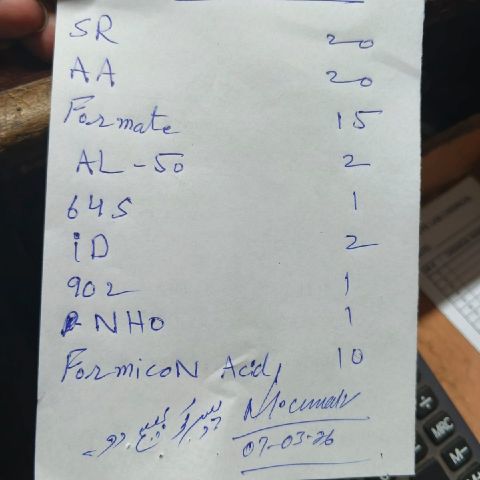 SR 20
AA 20
Formate 15
AL-50 2
64S 1
iD 2
902 1
NHO 1
FormicoN Acid 10
07-03-26
MRC
M-